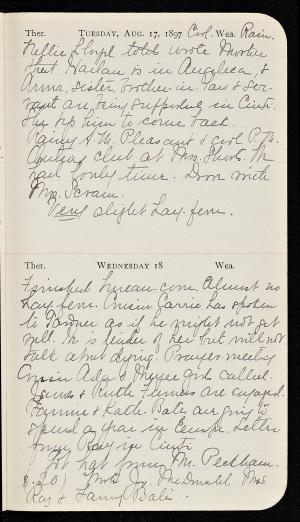 Ther. TUESDAY, AUG. 17, 1897 Cool. Wea. Rain.
Nellie Lloyd told wrote Mother
that Harlan is in Angelica, &
Anna, sister, brother-in-law & ser-
vant are being supported in Cinti.
She begs him to come back.
Rainy A.M. Pleasant & cool P.M.
club at Mrs.
had lovely time. Drove with
Mrs.
Very slight hay-fever.
Ther. WEDNESDAY 18 Wea.
Finished Almost no
hay-fever. Cousin Carrie has spoken
to Gardner as if he might not get
well. He is tender of her but will not
talk about dying. Prayer meeting
Cousin Ada & girls called.
James & Ruth are engaged.
Fannie & Katie Bale are going to
spend a year in Europe. Letter
from Ray in Cinti
Got hat from M. Peckham.
Mrs. Jr. McDonald Mrs
Ray & Fanny Bale.